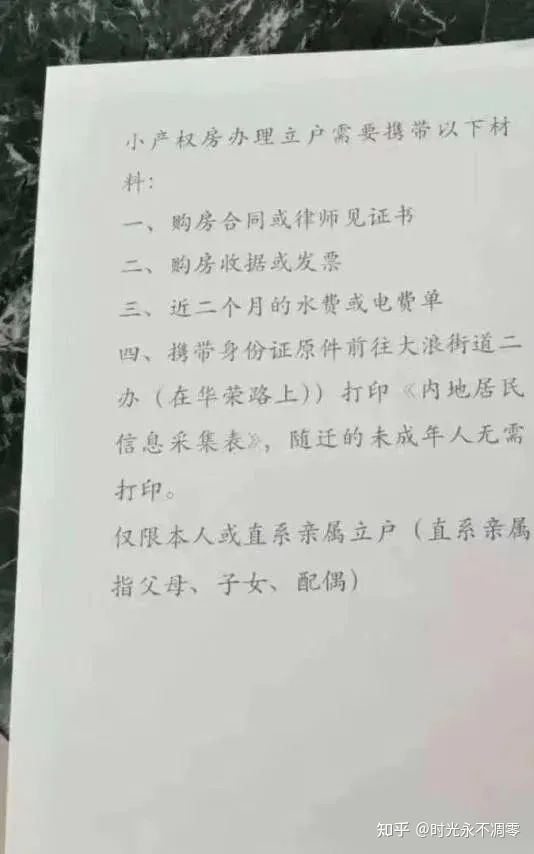 小产权房办理立户需要携带以下材
料：
一、购房合同或律师见证书
二、购房收据或发票
三、近二个月的水费或电费单
四、携带身份证原件前往大浪街道二
办（在华荣路上））打印《内地居民
信息采集表》，随迁的未成年人无需
打印。
仅限本人或直系亲属立户（直系亲属
指父母、子女、配偶）
知乎 @时光永不凋零